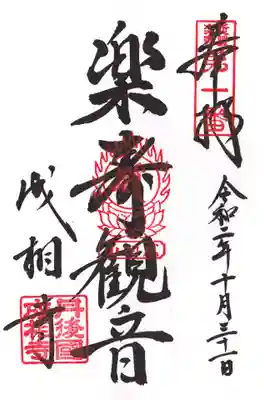 奉拝
令和二年十月三十一日
楽寿観音
成相寺
丹後國
成相寺